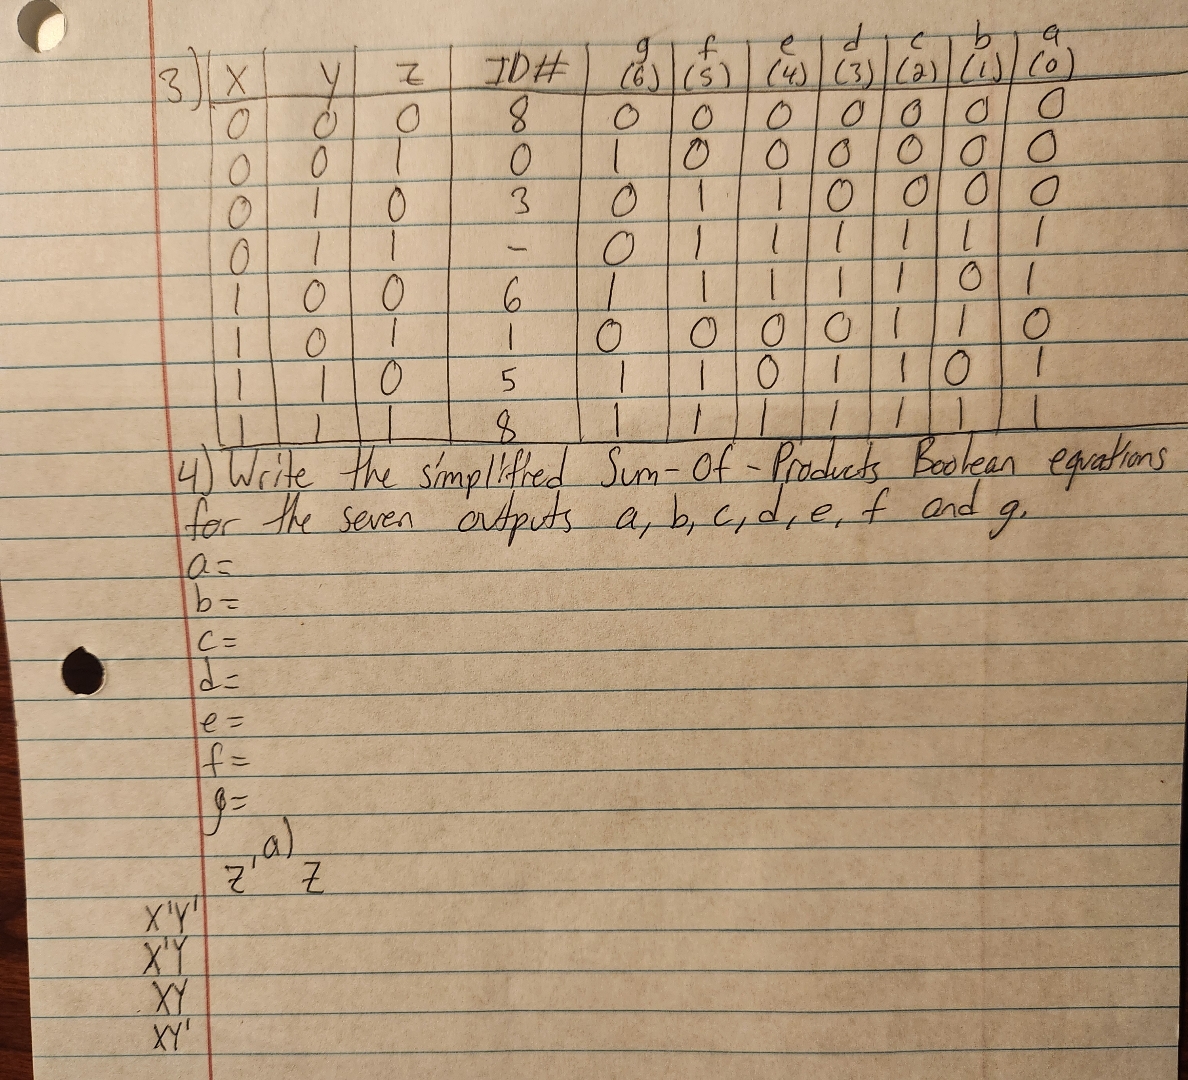 g f e d c b a
3) X Y Z ID# (6) (5) (4) (3) (2) (1) (0)
0 0 0 8 0 0 0 0 0 0 0
0 0 1 0 1 0 0 0 0 0 0
0 1 0 3 0 1 1 0 0 0 0
0 1 1 - 0 1 1 1 1 1 1
1 0 0 6 1 1 1 1 1 0 1
1 0 1 1 0 0 0 0 1 1 0
1 1 0 5 1 1 0 1 1 0 1
1 1 1 8 1 1 1 1 1 1 1
4) Write the simplified Sum-Of-Products Boolean equations
for the seven outputs a, b, c, d, e, f and g.
a=
b=
c=
d=
e=
f=
g=
a)
Z' Z
X'Y'
X'Y
XY
XY'